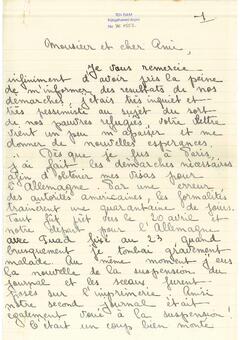 1
Monsieur et cher Ami,
Je vous remercie
infiniment d'avoir pris la peine
de m'informer des resultats de nos
démarches, j'étais très inquiet et
très pessimiste au sujet du sort
de nos pauvres réfugiés, votre lettre
vient un peu m'apaiser et me
donner de nouvelles espérances
Dès que je fus à Paris,
j'ai fait les démarches nécessaires
afin d'obtenir mes visas pour
l'Allemagne Par une erreur
des autorités américaines, les formalités
trainèrent une quarantaine de jours.
Tout fut prêt vers le 20 avril et
notre départ pour l'Allemagne
avec fixé au 23 Quand
brusquement je tombai gravement
malade. Au même moment j'eus
la nouvelle de la suspension du
journal et les sceaux furent
posés sur l'imprimerie. Ainsi
notre second journal était
également voué à la suspension!
C'était un coup bien monté